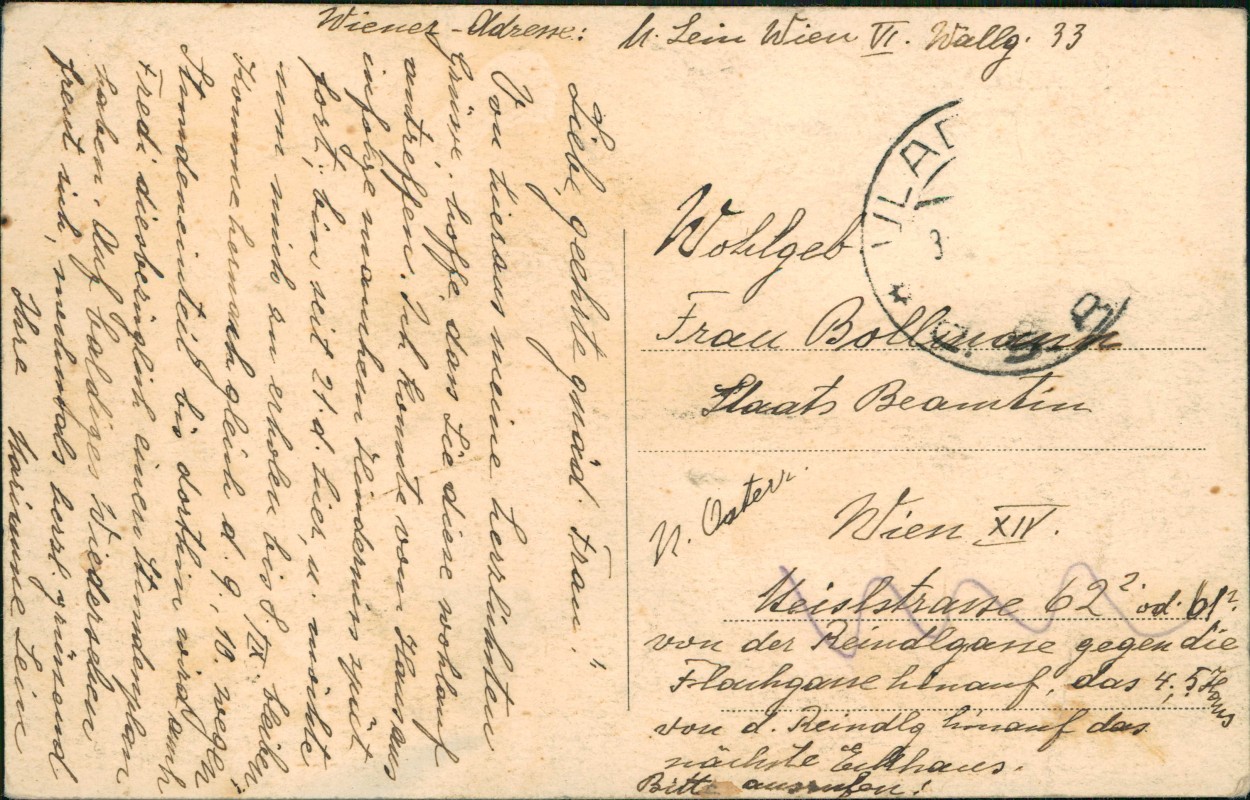 Wiener-Adresse: M. Lein Wien VI. Wallg. 33
Liebe, geehrte gnäd. Frau!
Von hieraus meine herzlichsten
Grüsse, hoffe, dass Sie diese wohlauf
antreffen. Ich konnte von Haus aus
infolge manchen Hindernisses spät
fort, bin seit 21. d. hier, u. möchte
nun mich so erholen bis 8. IX. bleiben
komme hernach gleich d. 9., 10. wegen
Stundeneinteil. bis dorthin wird auch
Fredi diesbezüglich einen Stundenplan
haben. Auf baldiges Wiedersehen
freut sich, mehrmals herzl. grüssend
Ihre Marianne Lein
Wohlgeb
Frau Bollmann
Staats Beamtin
N. Österr.
Wien XIV.
Meislstrasse 62? od. 61?
von der Reindlgasse gegen die
Flachgasse hinauf, das 4., 5. Haus
von d. Reindlg hinauf das
nächste Eckhaus.
Bitte ausrufen!
3